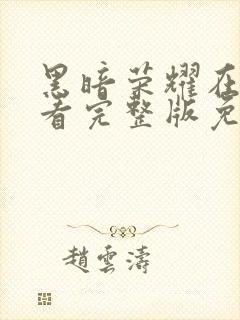 黑暗荣耀在
看完整版免
趙雲濤